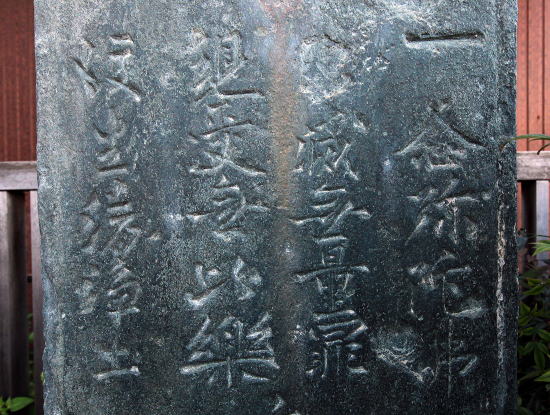 一念弥陀佛
即滅無量罪
現受無比樂
後生清浄土